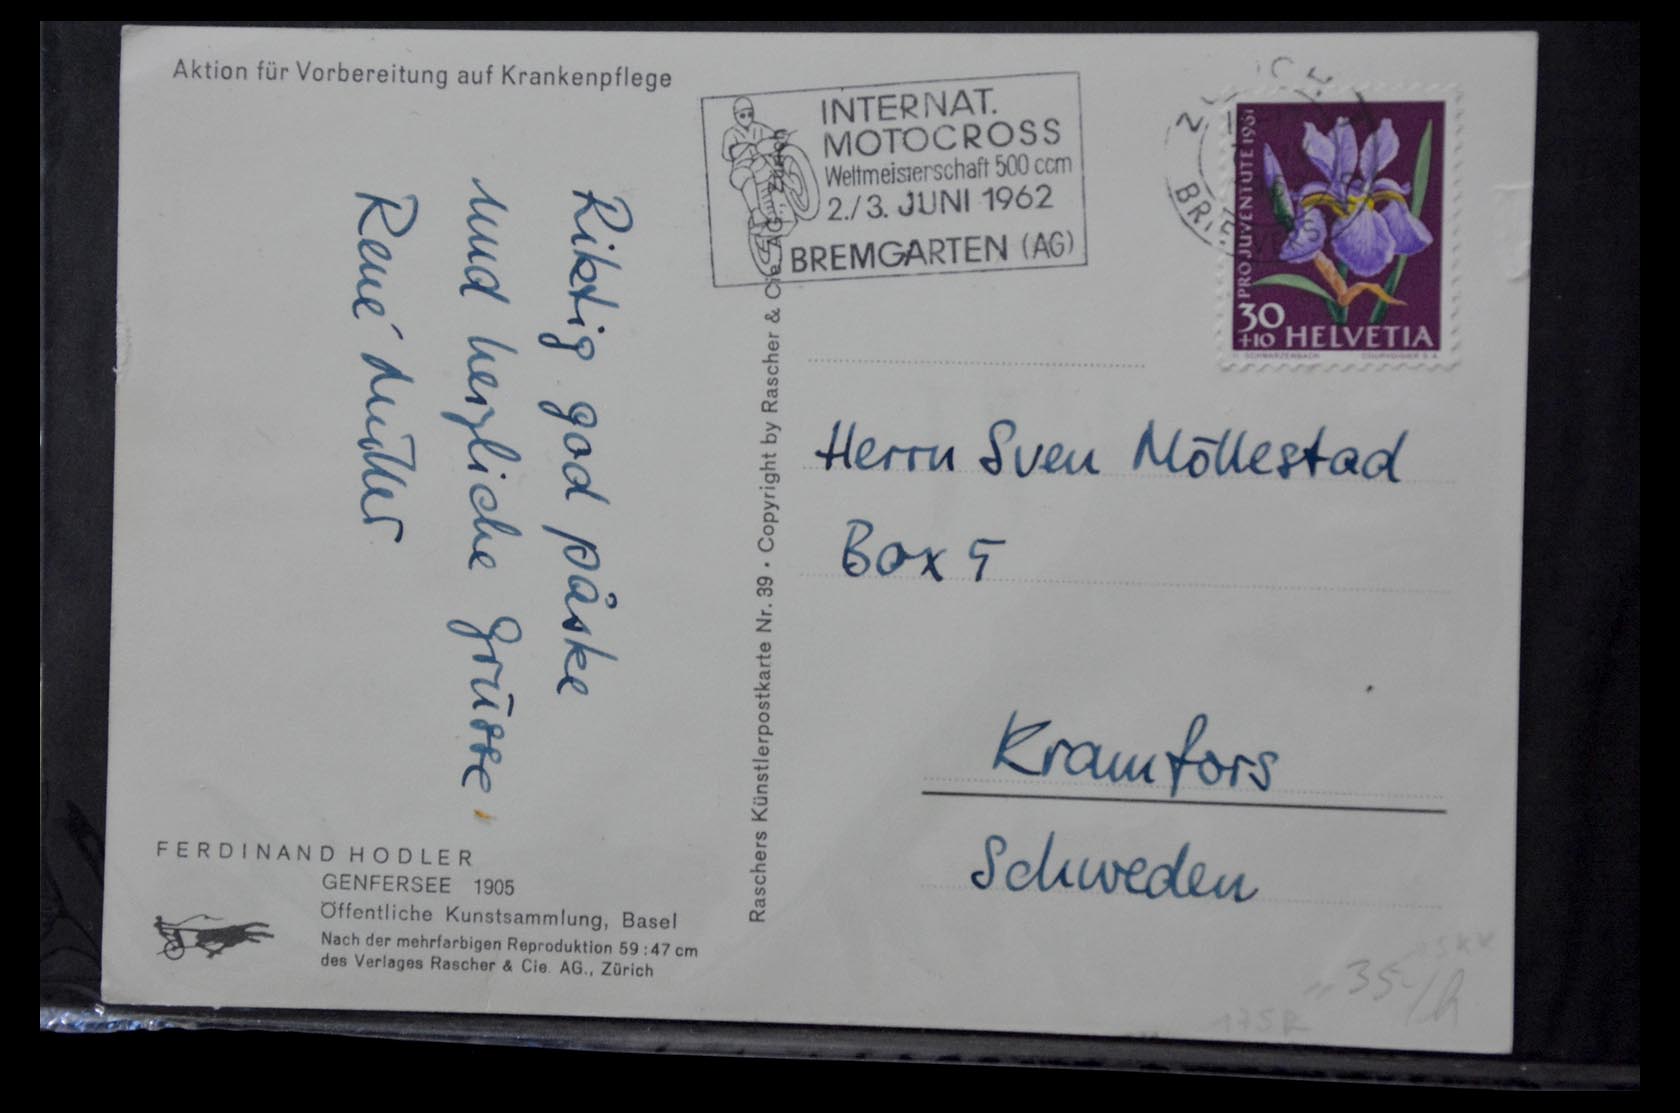 Aktion für Vorbereitung auf Krankenpflege
Riktig god påske
und herzliche Grüsse,
René Müller
FERDINAND HODLER
GENFERSEE 1905
Öffentliche Kunstsammlung, Basel
Nach der mehrfarbigen Reproduktion 59 : 47 cm
des Verlages Rascher & Cie. AG., Zürich
Raschers Künstlerpostkarte Nr. 39 · Copyright by Rascher & Cie. AG., Zürich
INTERNAT.
MOTOCROSS
Weltmeisterschaft 500 ccm
2./3. JUNI 1962
BREMGARTEN (AG)
PRO JUVENTUTE 1961
30
+10 HELVETIA
SCHWARZENBACH COURVOISIER S.A.
Herrn Sven Möllestad
Box 5
Kramfors
Schweden
35
175